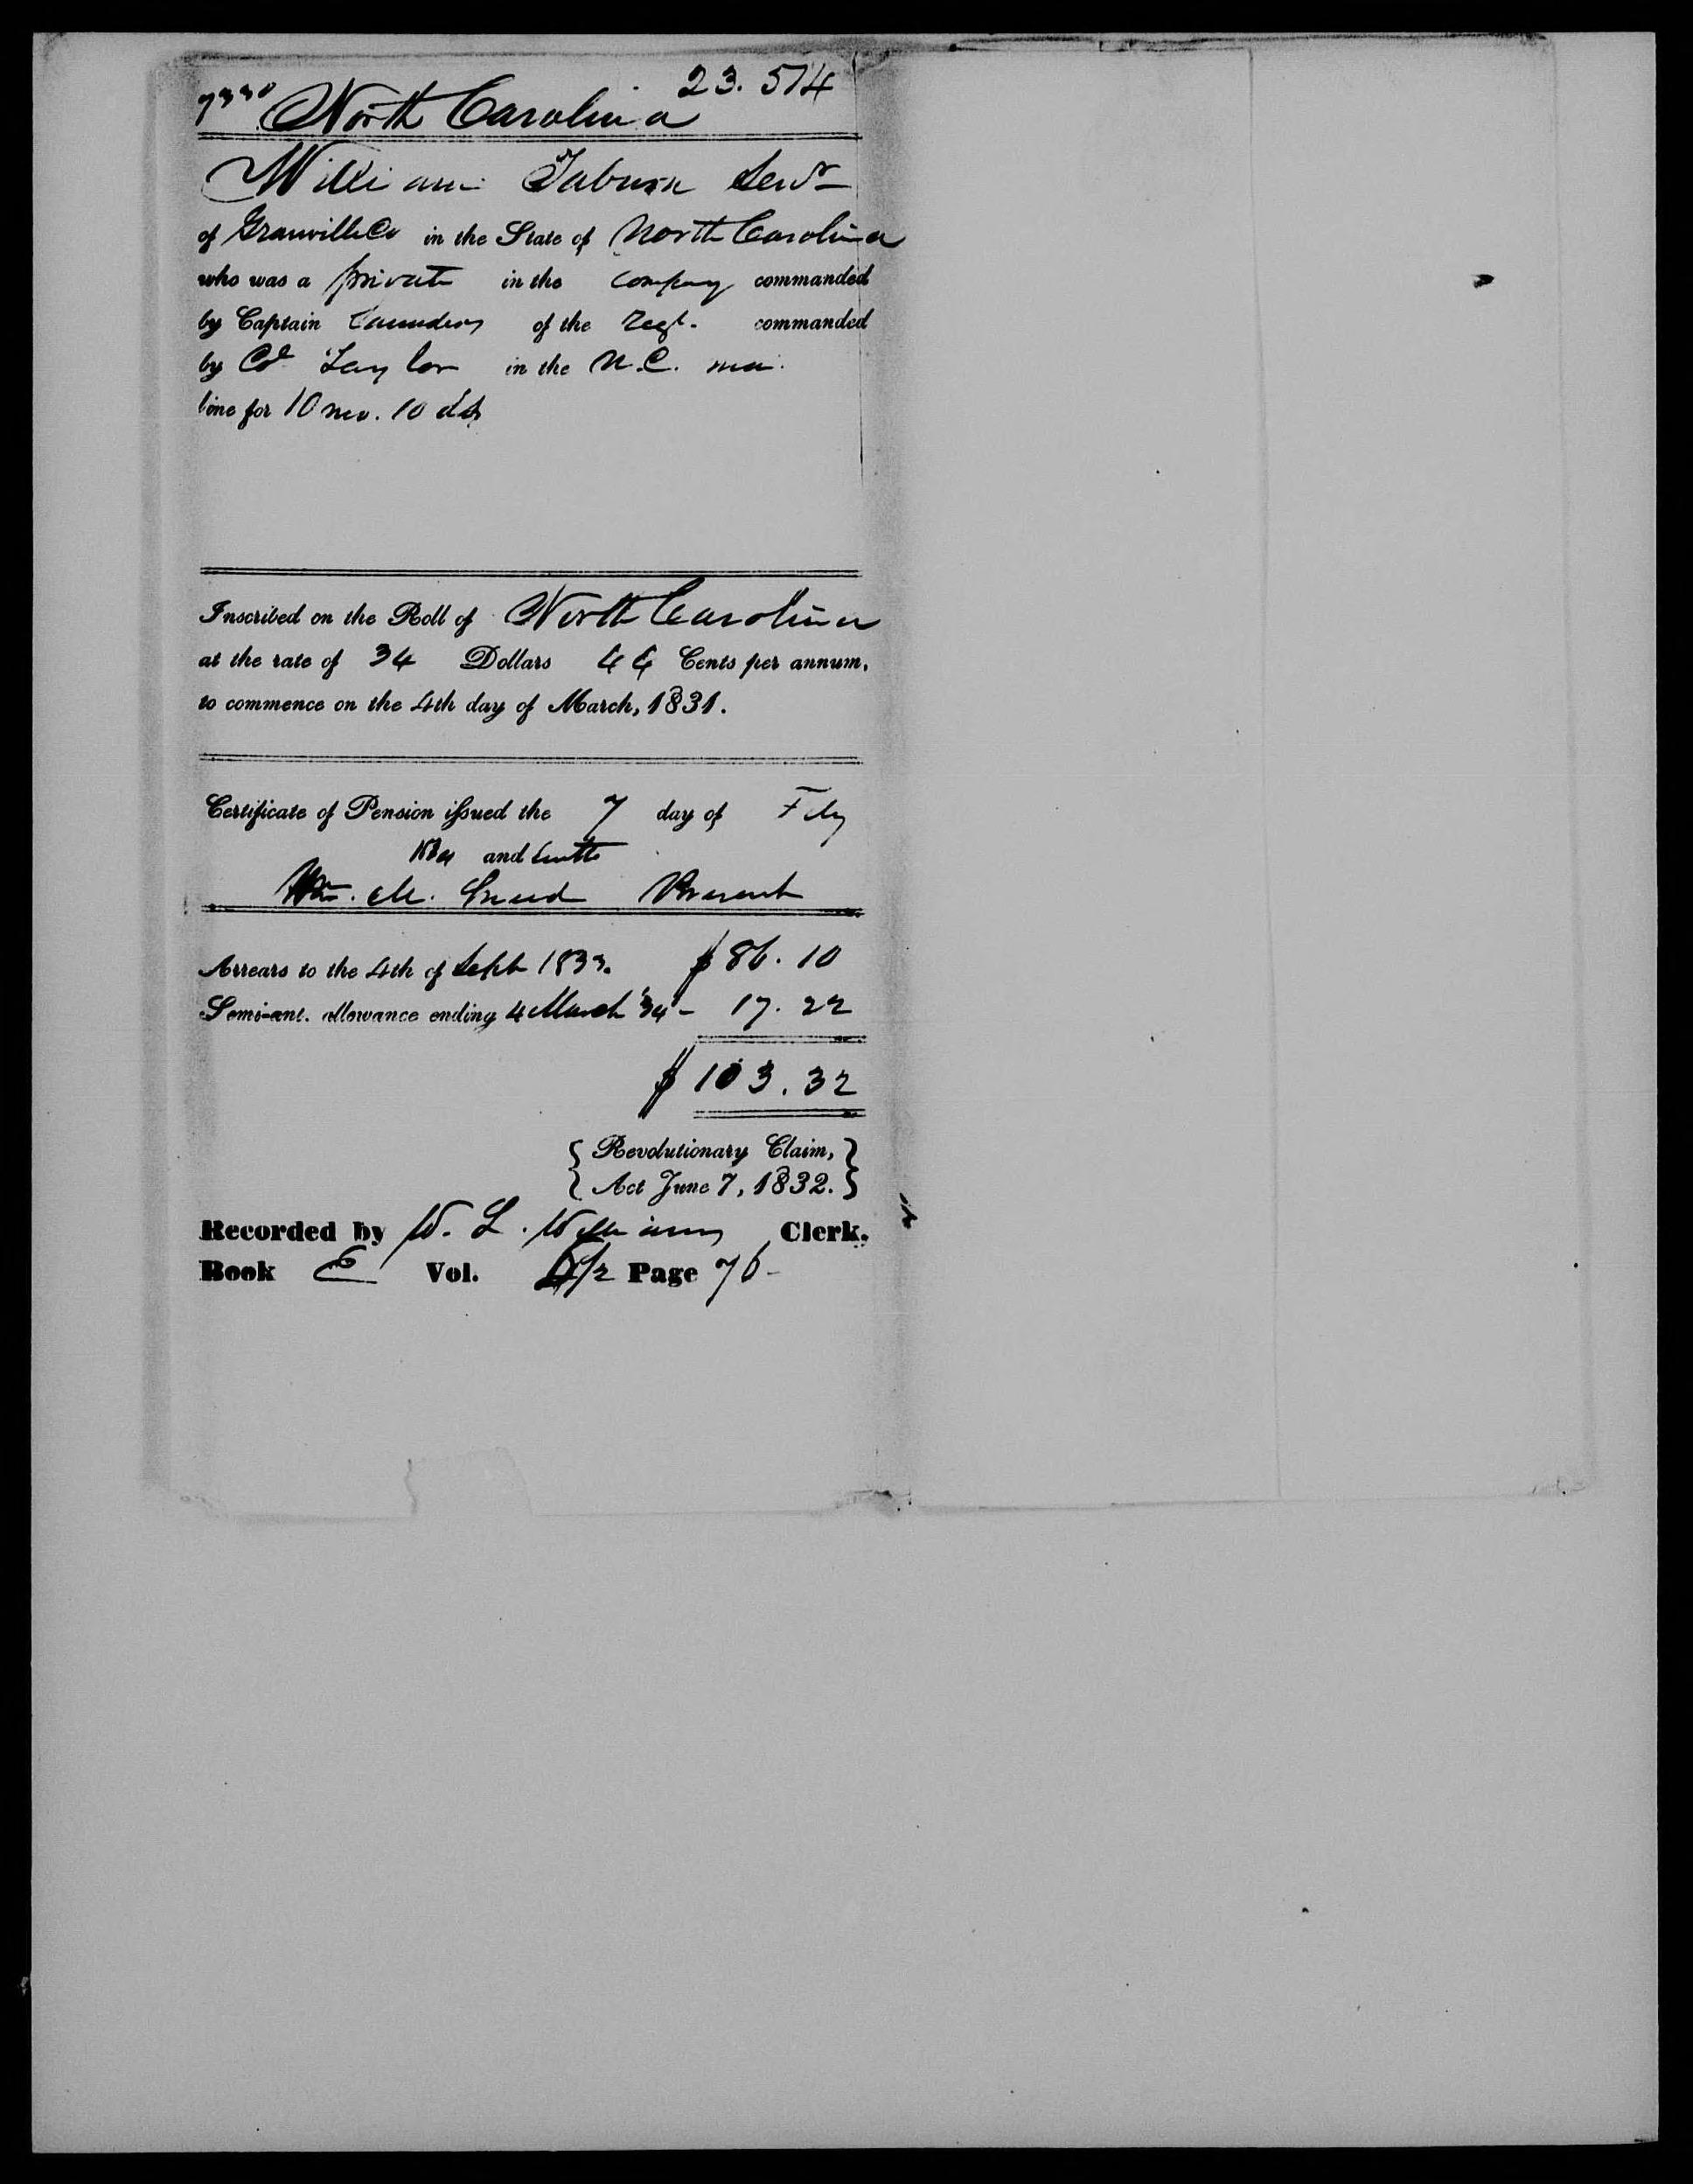 23.514
7330 North Carolina
William Taburn Senr
of Granville Co in the State of North Carolina
who was a private in the company commanded
by Captain Saunders of the Regt. commanded
by Col Taylor in the N.C.
line for 10 mo. 10 ds
Inscribed on the Roll of North Carolina
at the rate of 34 Dollars 44 Cents per annum,
to commence on the 4th day of March, 1831.
Certificate of Pension issued the 7 day of Feby
and
Wm. M. Sneed Present
Arrears to the 4th of Sept 1833. $86.10
Semi-anl. allowance ending 4 March '34 - 17.22
$103.32
{Revolutionary Claim,}
{Act June 7, 1832.}
Recorded by W. L. Williams Clerk.
Book E Vol. Page 76